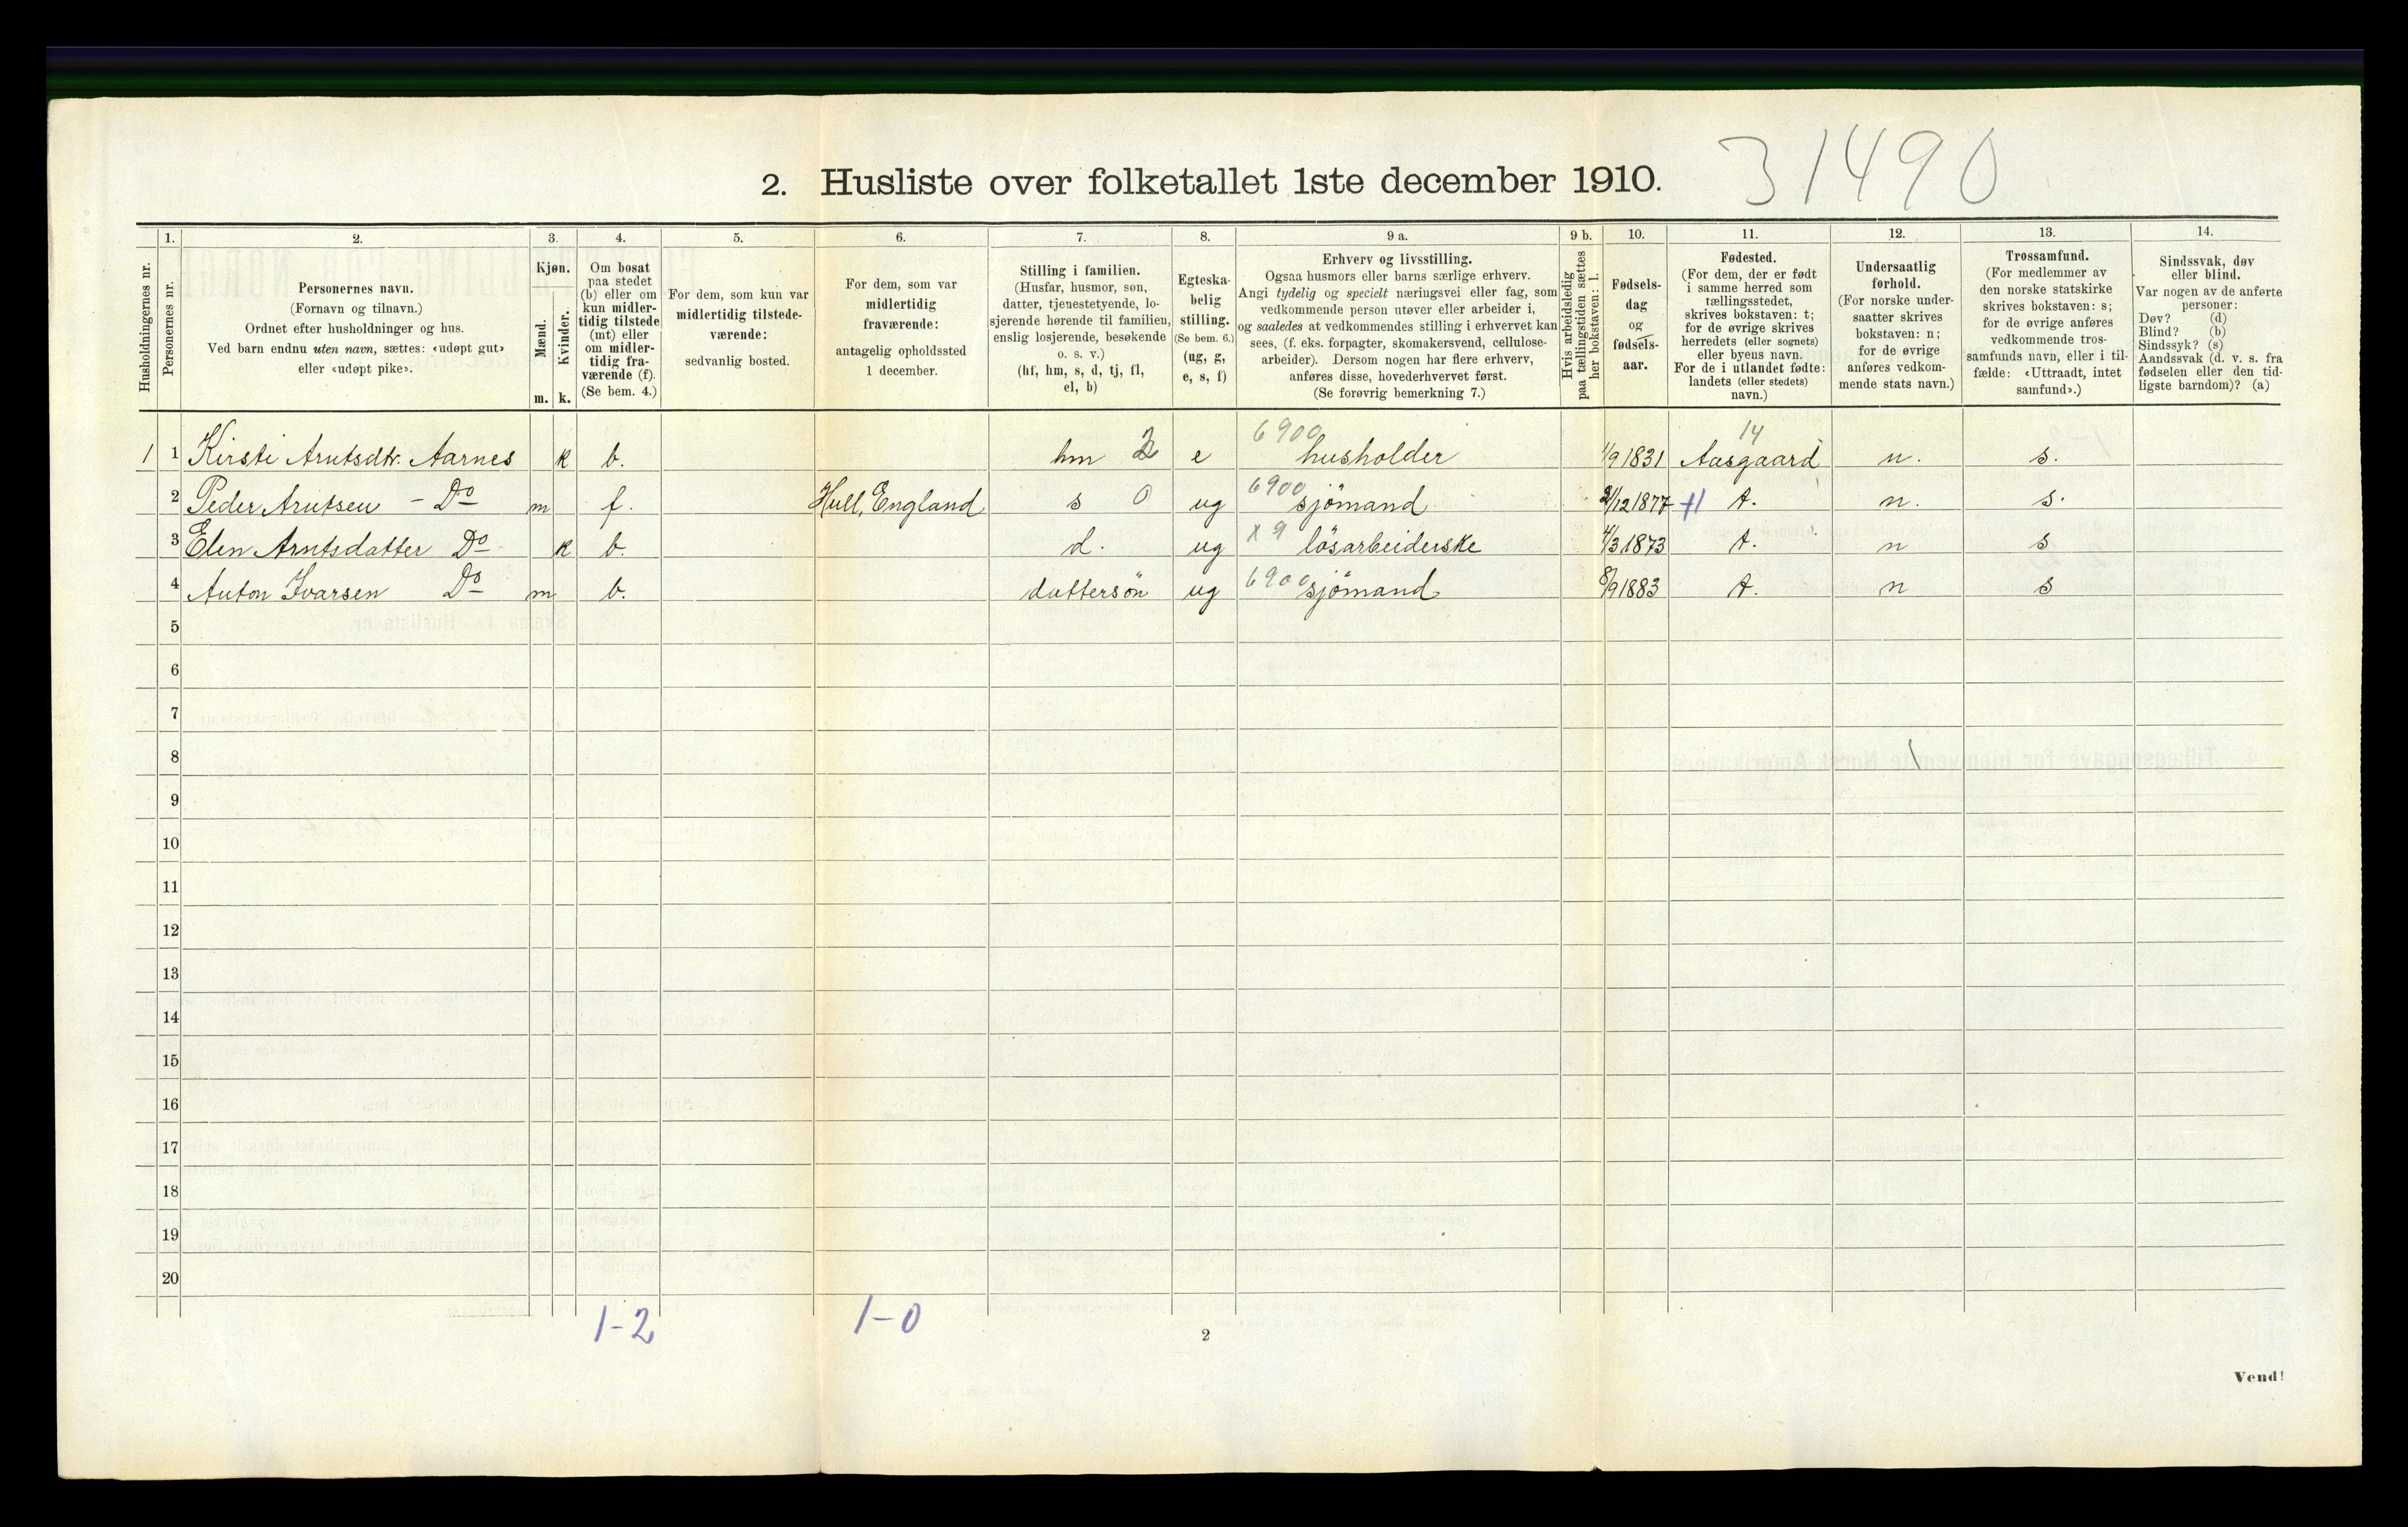 31490
2. Husliste over folketallet 1ste december 1910.
1. 2. 3. 4. 5. 6. 7. 8. 9 a. 9 b. 10. 11. 12. 13. 14.
Husholdningernes nr.
Personernes nr.
Personernes navn.
(Fornavn og tilnavn.)
Ordnet efter husholdninger og hus.
Ved barn endnu uten navn, sættes: «udøpt gut»
eller «udøpt pike».
Kjøn.
Mænd.
Kvinder.
m. k.
Om bosat
paa stedet
(b) eller om
kun midler-
tidig tilstede
(mt) eller
om midler-
tidig fra-
værende (f).
(Se bem. 4.)
For dem, som kun var
midlertidig tilstede-
værende:
sedvanlig bosted.
For dem, som var
midlertidig
fraværende:
antagelig opholdssted
1 december.
Stilling i familien.
(Husfar, husmor, søn,
datter, tjenestetyende, lo-
sjerende hørende til familien,
enslig losjerende, besøkende
o. s. v.)
(hf, hm, s, d, tj, fl,
el, b)
Egteska-
belig
stilling.
(Se bem. 6.)
(ug, g,
e, s, f)
Erhverv og livsstilling.
Ogsaa husmors eller barns særlige erhverv.
Angi tydelig og specielt næringsvei eller fag, som
vedkommende person utøver eller arbeider i,
og saaledes at vedkommendes stilling i erhvervet kan
sees, (f. eks. forpagter, skomakersvend, cellulose-
arbeider). Dersom nogen har flere erhverv,
anføres disse, hovederhvervet først.
(Se forøvrig bemerkning 7.)
Hvis arbeidsledig
paa tællingstiden sættes
her bokstaven: l.
Fødsels-
dag
og
fødsels-
aar.
Fødested.
(For dem, der er født
i samme herred som
tællingsstedet,
skrives bokstaven: t;
for de øvrige skrives
herredets (eller sognets)
eller byens navn.
For de i utlandet fødte:
landets (eller stedets)
navn.)
Undersaatlig
forhold.
(For norske under-
saatter skrives
bokstaven: n;
for de øvrige
anføres vedkom-
mende stats navn.)
Trossamfund.
(For medlemmer av
den norske statskirke
skrives bokstaven: s;
for de øvrige anføres
vedkommende tros-
samfunds navn, eller i til-
fælde: «Uttraadt, intet
samfund».)
Sindssvak, døv
eller blind.
Var nogen av de anførte
personer:
Døv? (d)
Blind? (b)
Sindssyk? (s)
Aandssvak (d. v. s. fra
fødselen eller den tid-
ligste barndom)? (a)
6900 14
1 1 Kirsti Arntsdtr. Aarnes k b. hm 2 e husholder 1/9 1831 Aasgaard n. s.
2 Peder Arntsen - Do m f. Hull, England s 0 ug 6900 sjömand 2/12 1877 t. n. s.
3 Elen Arntsdatter Do k b. d. ug x 9 lösarbeiderske 4/3 1873 t. n s
4 Anton Ivarsen Do m b. dattersön ug 6900 sjömand 8/9 1883 t. n s
5
6
7
8
9
10
11
12
13
14
15
16
17
18
19
20
1-2 1-0
2
Vend!